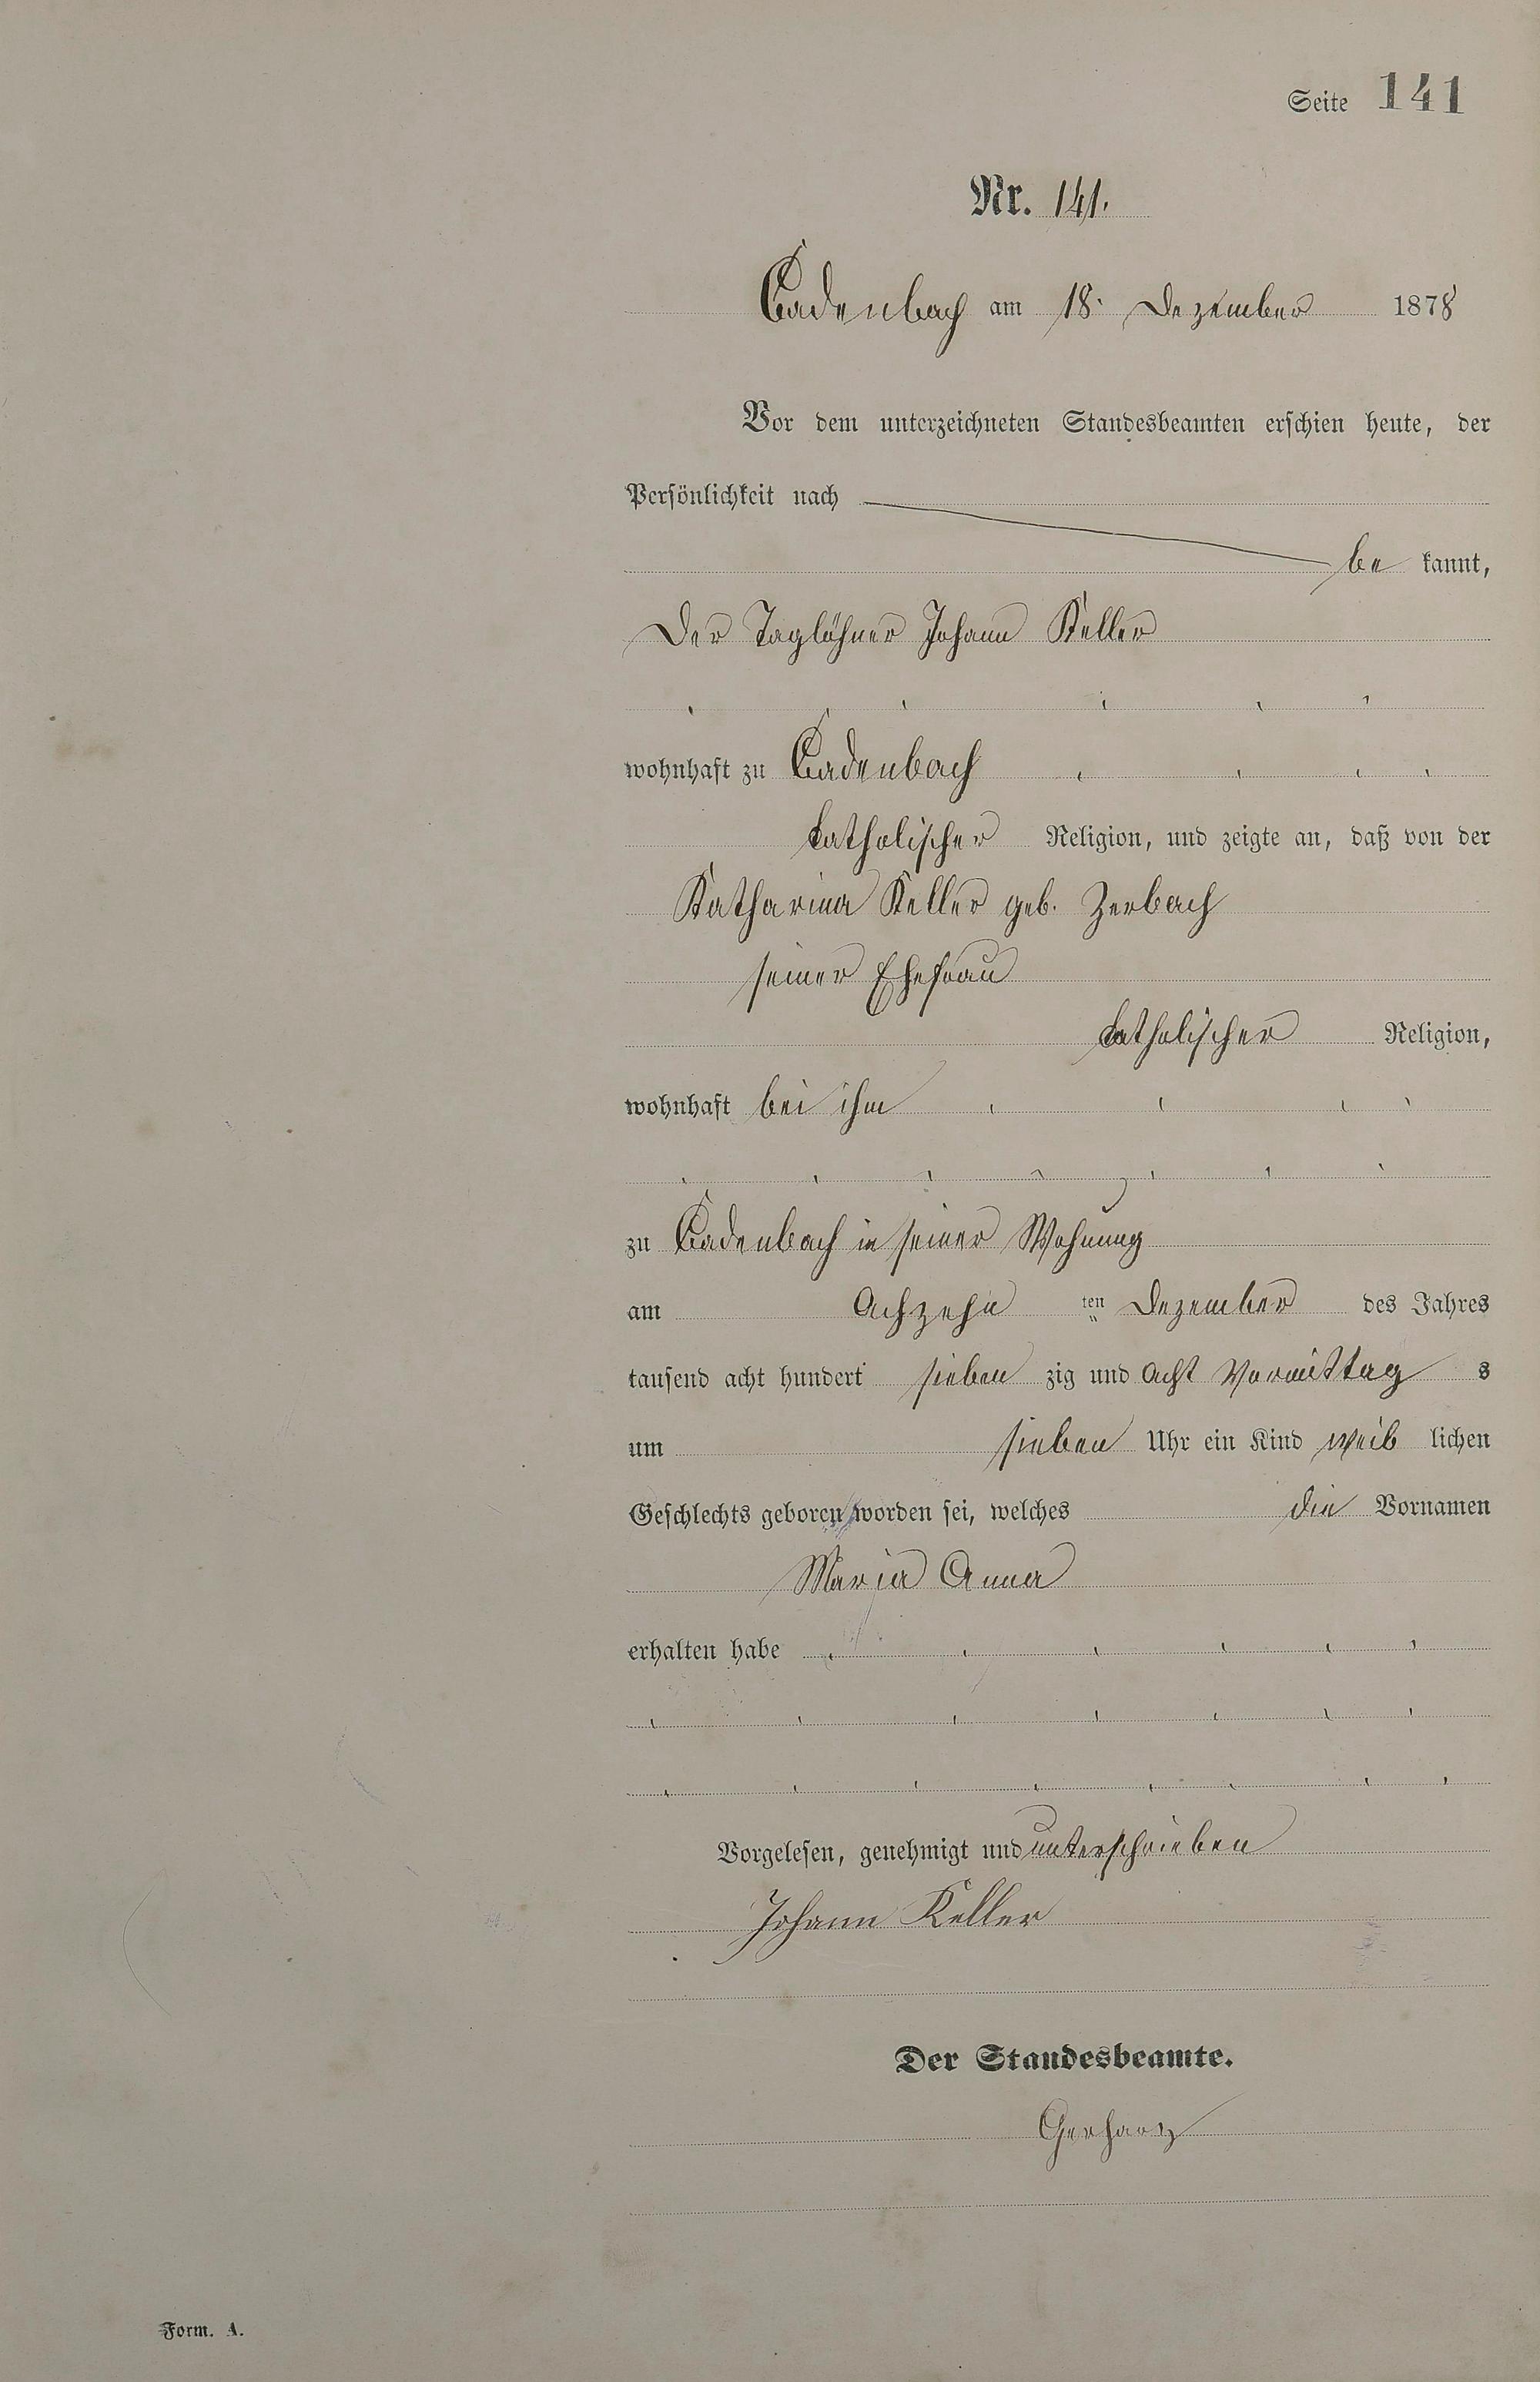 Seite 141
Nr. 141.
Cadenbach am 18. Dezember 1878
Vor dem unterzeichneten Standesbeamten erschien heute, der
Persönlichkeit nach
be kannt,
Der Taglöhner Johann Keller
wohnhaft zu Cadenbach
katholischer Religion, und zeigte an, daß von der
Katharina Keller geb. Zerbach
seiner Ehefrau
katholischer Religion,
wohnhaft bei ihm
zu Cadenbach in seiner Wohnung
am Achzehn ten Dezember des Jahres
tausend acht hundert sieben zig und acht Vormittag s
um sieben Uhr ein Kind weib lichen
Geschlechts geboren worden sei, welches die Vornamen
Maria Anna
erhalten habe
Vorgelesen, genehmigt und unterschrieben
Johann Keller
Der Standesbeamte.
Gerharz
Form. A.